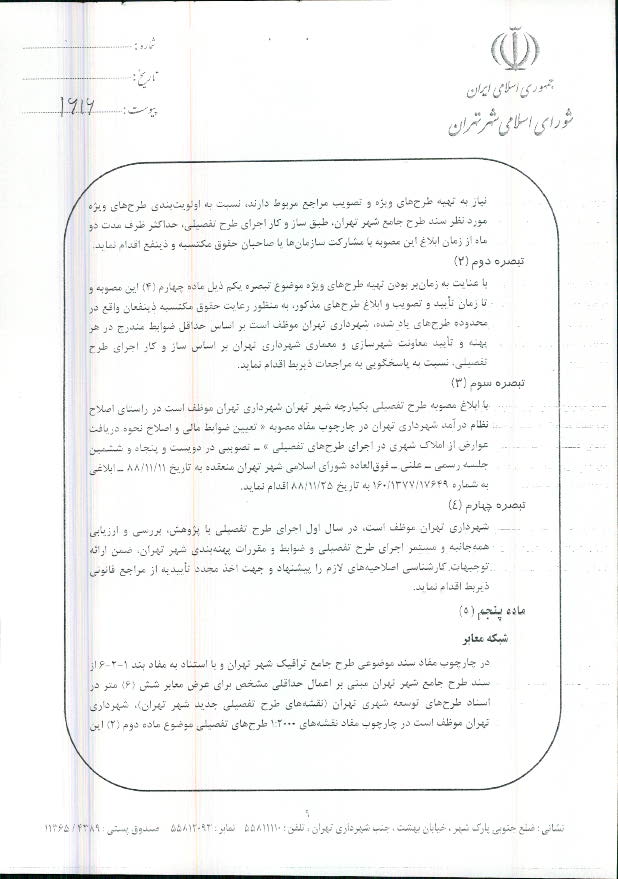 جمهوری اسلامی ایران
شورای اسلامی شهر تهران
شماره :
تاریخ :
پیوست :
نیاز به تهیه طرح‌های ویژه و تصویب مراجع مربوط دارند، نسبت به اولویت‌بندی طرح‌های ویژه
مورد نظر سند طرح جامع شهر تهران، طبق ساز و کار اجرای طرح تفصیلی، حداکثر ظرف مدت دو
ماه از زمان ابلاغ این مصوبه با مشارکت سازمان‌ها یا صاحبان حقوق مکتسبه و ذینفع اقدام نماید.
تبصره دوم (۲)
با عنایت به زمان‌بر بودن تهیه طرح‌های ویژه موضوع تبصره یکم ذیل ماده چهارم (۴) این مصوبه و
تا زمان تأیید و تصویب و ابلاغ طرح‌های مذکور، به منظور رعایت حقوق مکتسبه ذینفعان واقع در
محدوده طرح‌های یاد شده، شهرداری تهران موظف است بر اساس حداقل ضوابط مندرج در هر
پهنه و تأیید معاونت شهرسازی و معماری شهرداری تهران بر اساس ساز و کار اجرای طرح
تفصیلی، نسبت به پاسخگویی به مراجعات ذیربط اقدام نماید.
تبصره سوم (۳)
با ابلاغ مصوبه طرح تفصیلی یکپارچه شهر تهران شهرداری تهران موظف است در راستای اصلاح
نظام درآمد شهرداری تهران در چارچوب مفاد مصوبه « تعیین ضوابط مالی و اصلاح نحوه دریافت
عوارض از املاک شهری در اجرای طرح‌های تفصیلی » ـ تصویبی در دویست و پنجاه و ششمین
جلسه رسمی ـ علنی ـ فوق‌العاده شورای اسلامی شهر تهران منعقده به تاریخ ۸۸/۱۱/۱۱ ـ ابلاغی
به شماره ۱۶۰/۱۳۷۷/۱۷۶۴۹ به تاریخ ۸۸/۱۱/۲۵ اقدام نماید.
تبصره چهارم (٤)
شهرداری تهران موظف است، در سال اول اجرای طرح تفصیلی با پژوهش، بررسی و ارزیابی
همه‌جانبه و مستمر اجرای طرح تفصیلی و ضوابط و مقررات پهنه‌بندی شهر تهران، ضمن ارائه
توجیهات کارشناسی اصلاحیه‌های لازم را پیشنهاد و جهت اخذ مجدد تأییدیه از مراجع قانونی
ذیربط اقدام نماید.
ماده پنجم (٥)
شبکه معابر
در چارچوب مفاد سند موضوعی طرح جامع ترافیک شهر تهران و با استناد به مفاد بند ۱-۲-۶ از
سند طرح جامع شهر تهران مبنی بر اعمال حداقلی مشخص برای عرض معابر شش (۶) متر در
اسناد طرح‌های توسعه شهری تهران (نقشه‌های طرح تفصیلی جدید شهر تهران)، شهرداری
تهران موظف است در چارچوب مفاد نقشه‌های ۱:۲۰۰۰ طرح‌های تفصیلی موضوع ماده دوم (۲) این
۹
نشانی : ضلع جنوبی پارک شهر ، خیابان بهشت ، جنب شهرداری تهران ، تلفن : ۵۵۸۱۱۱۱۰ نمابر : ۵۵۸۱۲۰۹۲ صندوق پستی : ۴۳۸۹ / ۱۱۳۶۵